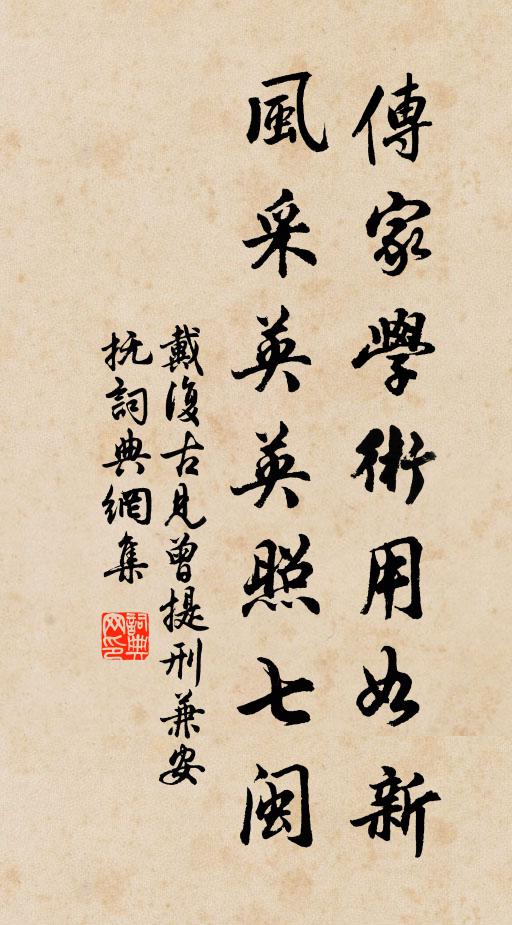 傳家學術用如新
風采英英照七閩
戴復古見曾提刑兼安
抚詞典網集
詞典网印